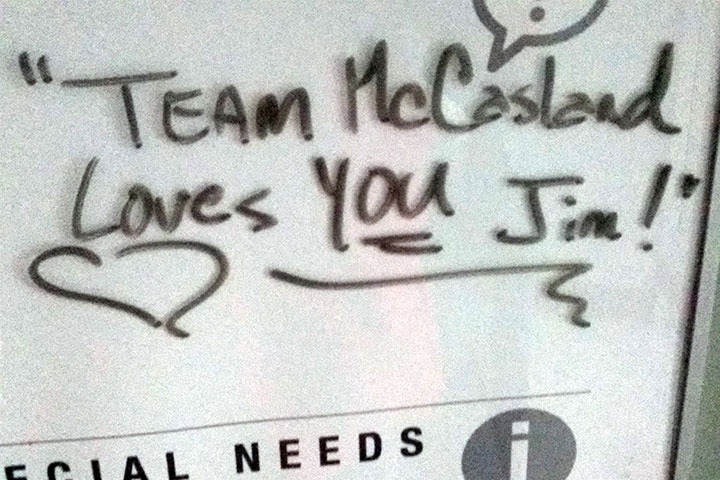 "TEAM McCasland
Loves YOU Jim!"
ECIAL NEEDS
i